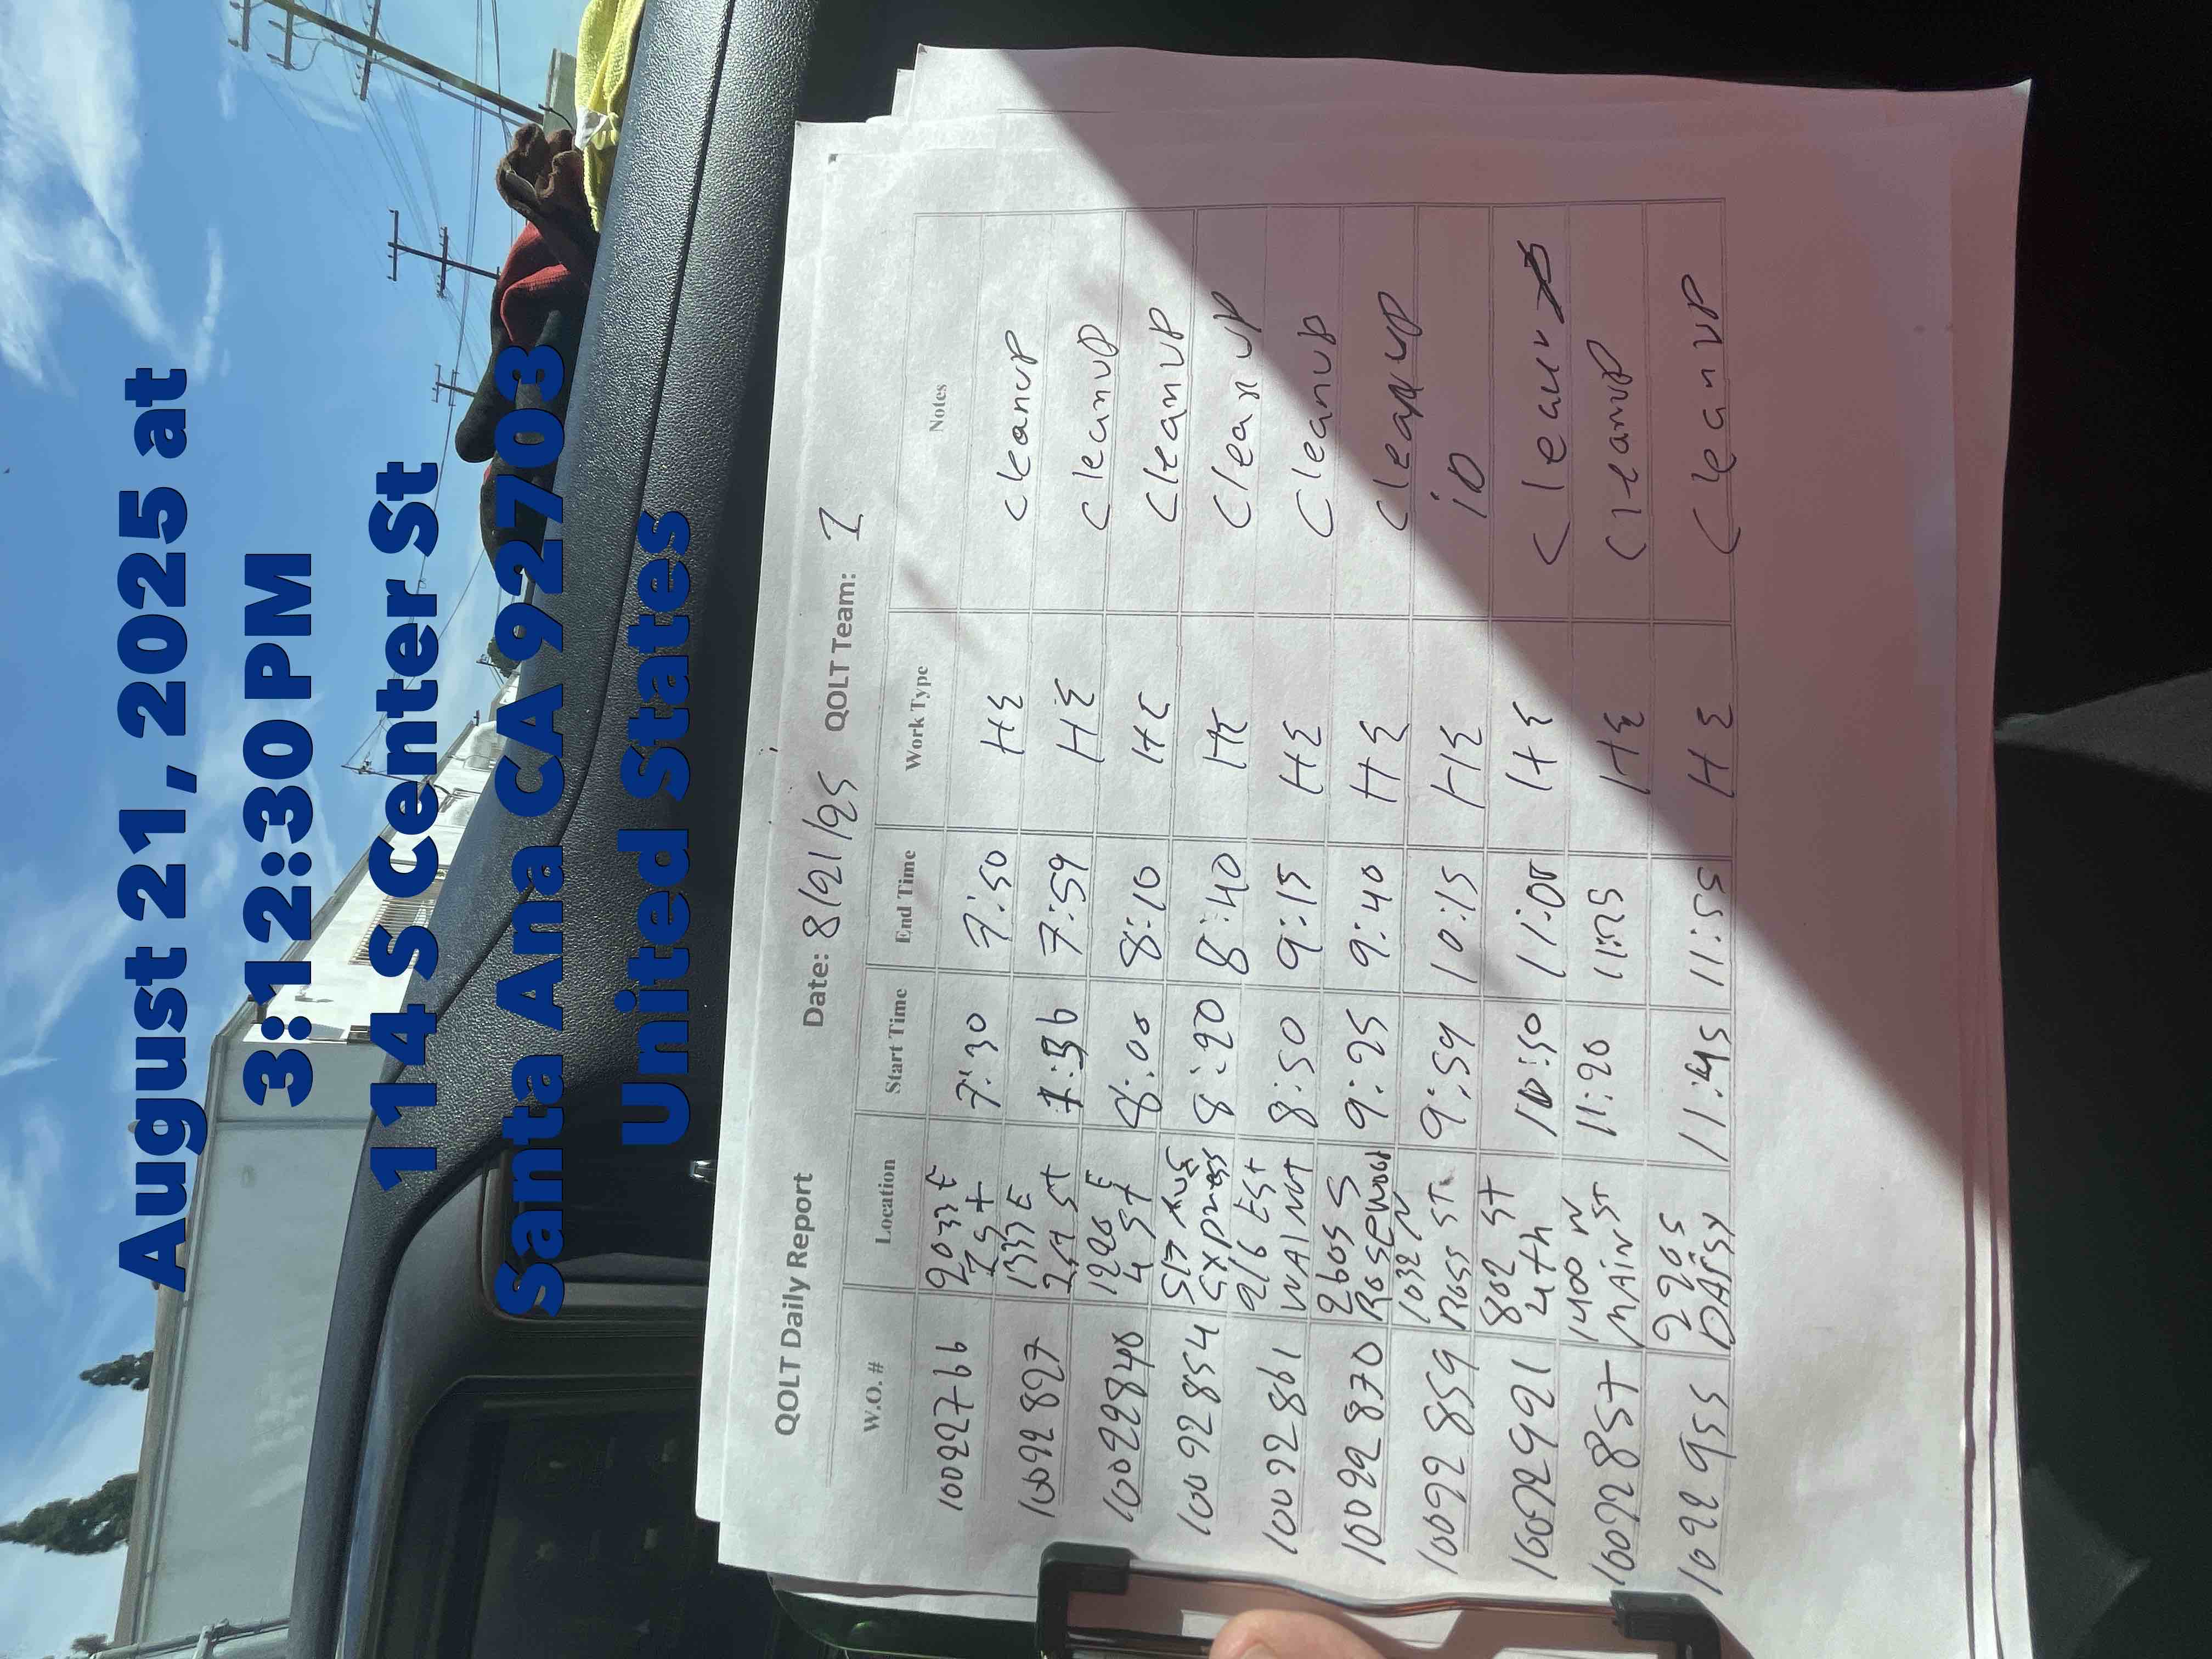 August 21, 2025 at
3:12:30 PM
114 S Center St
Santa Ana CA 92703
United States
QOLT Daily Report Date: 8/21/25 QOLT Team: 1
W.O. # Location Start Time End Time Work Type Notes
10092766 2033 E 7:30 7:50 HE cleanup
1 St
10092897 1333 E 7:56 7:59 HE Cleanup
St
10092840 1220 E 8:00 8:10 HE Cleanup
4 St
10092854 8:20 8:40 HE Cleanup
Express
10092861 216 Est 8:50 9:15 HE Cleanup
WAlNUT
10092870 2605 S 9:25 9:40 HE Cleanup
Rosewood
10092859 1032 N 9:59 10:15 HE iD
Ross ST.
10092921 802 ST 10:50 11:00 HE
4th
1400 N 11:20 11:25 HE Cleanup
MAiN ST
1092 955 220 S 11:45 11:55 HE Cleanup
DAiSY